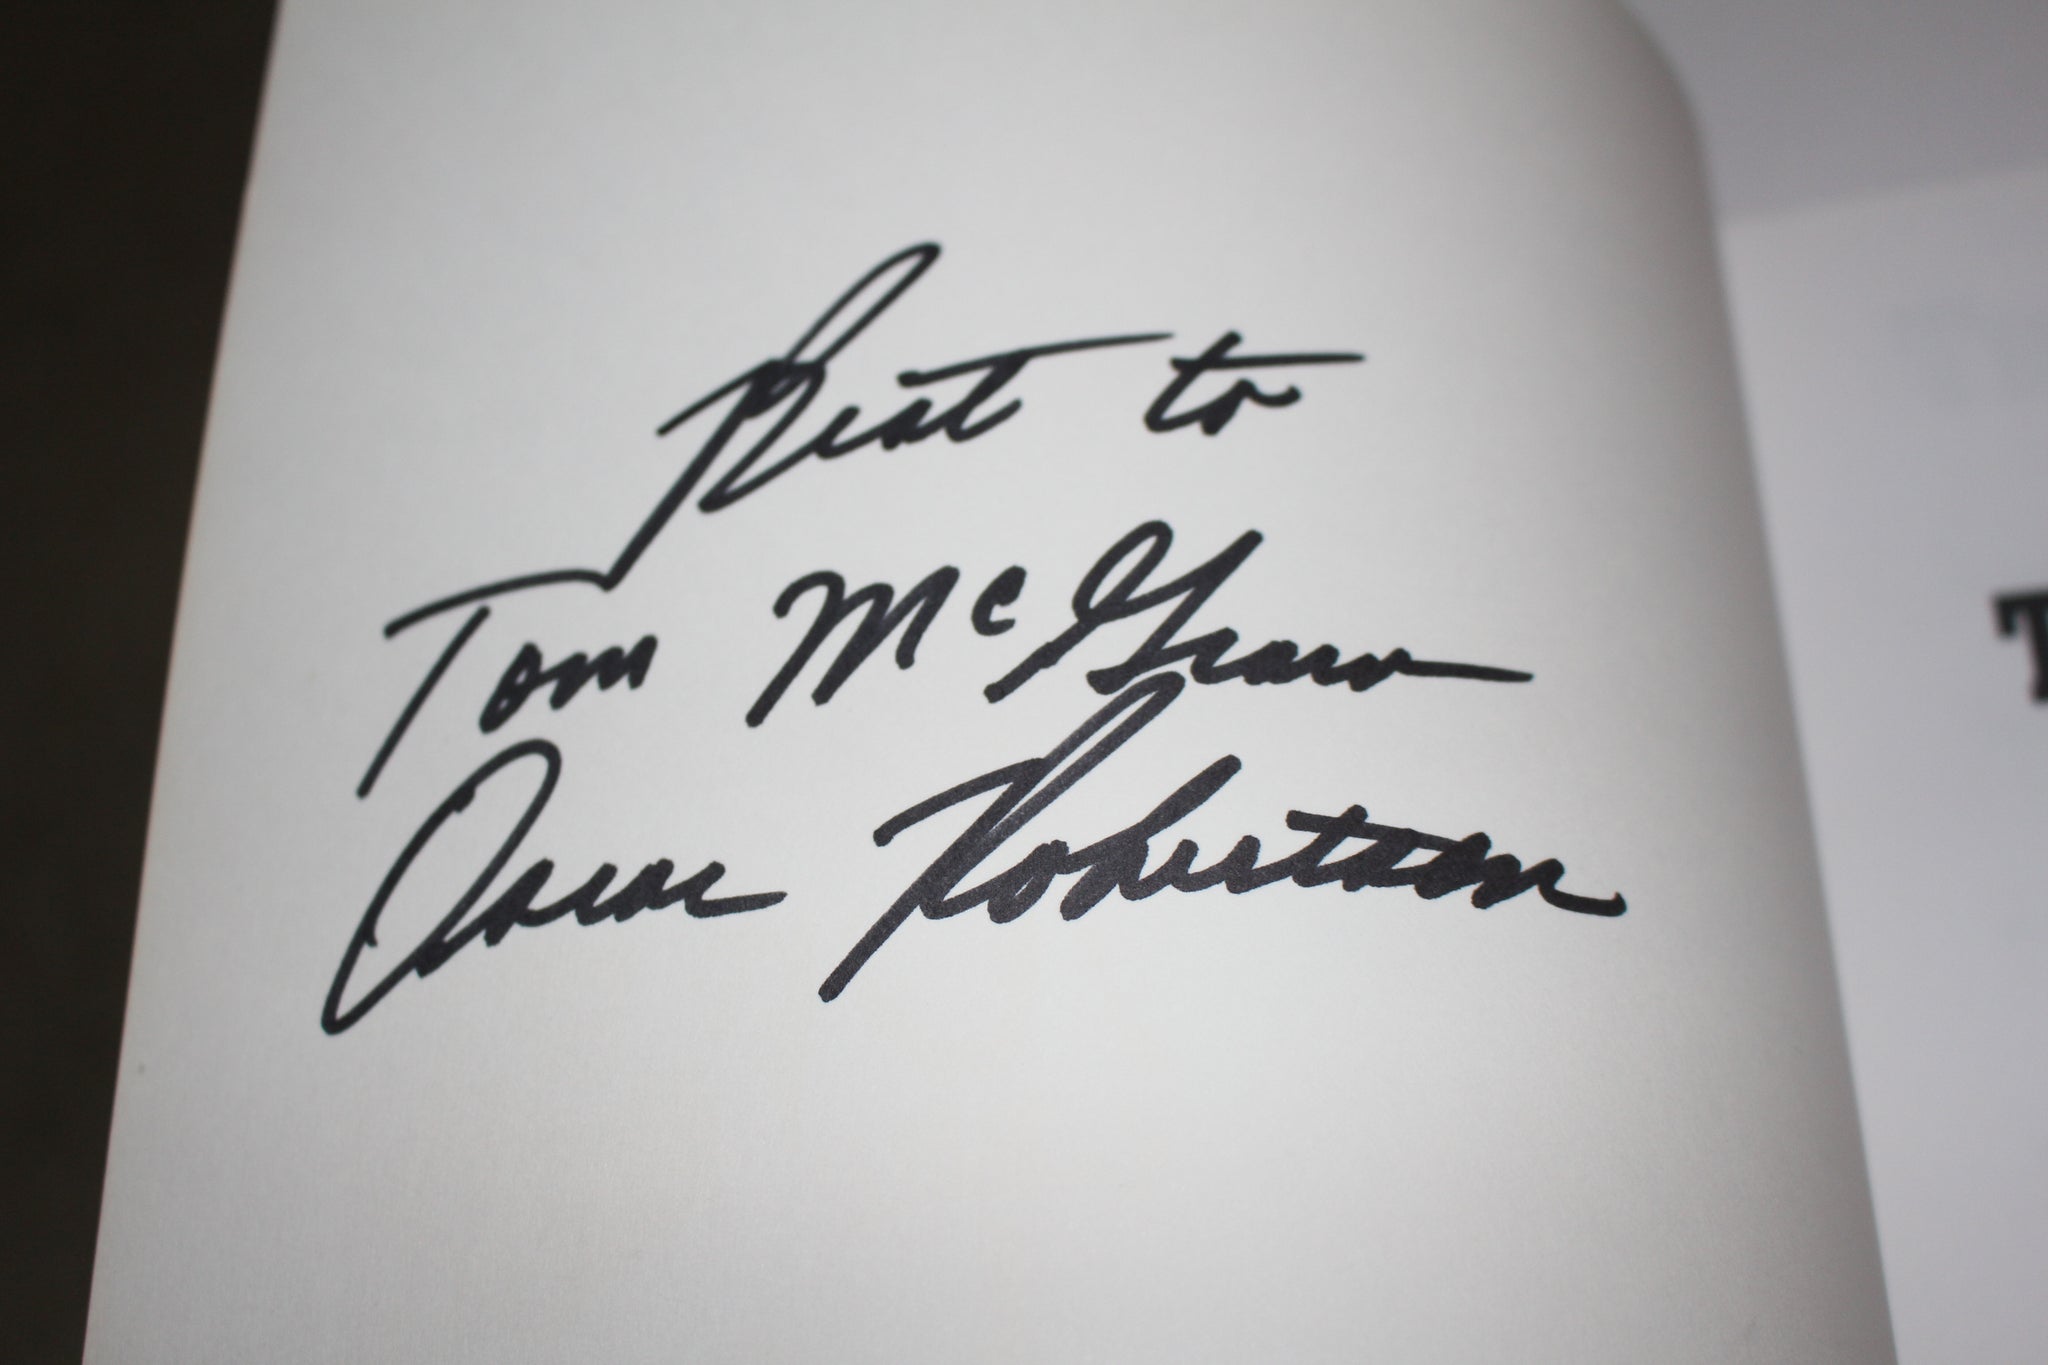 Best to
Tom McGraw
Oscar Robertson
T